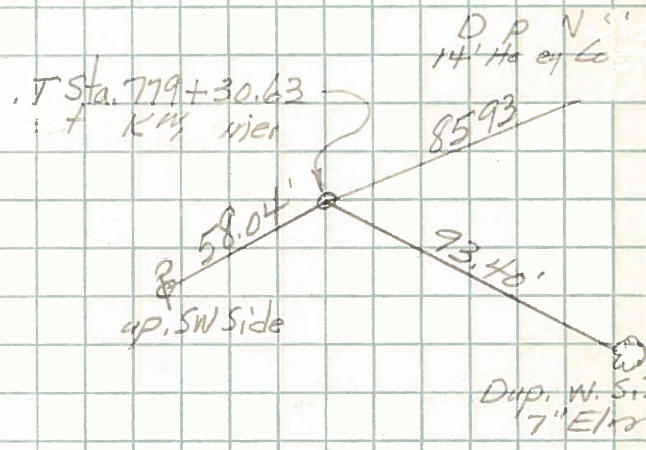 D p N
14"
.T Sta. 779+30.63
85 93
58.04'
93.40'
up. SW Side
Dup. W. Si
7" Elm